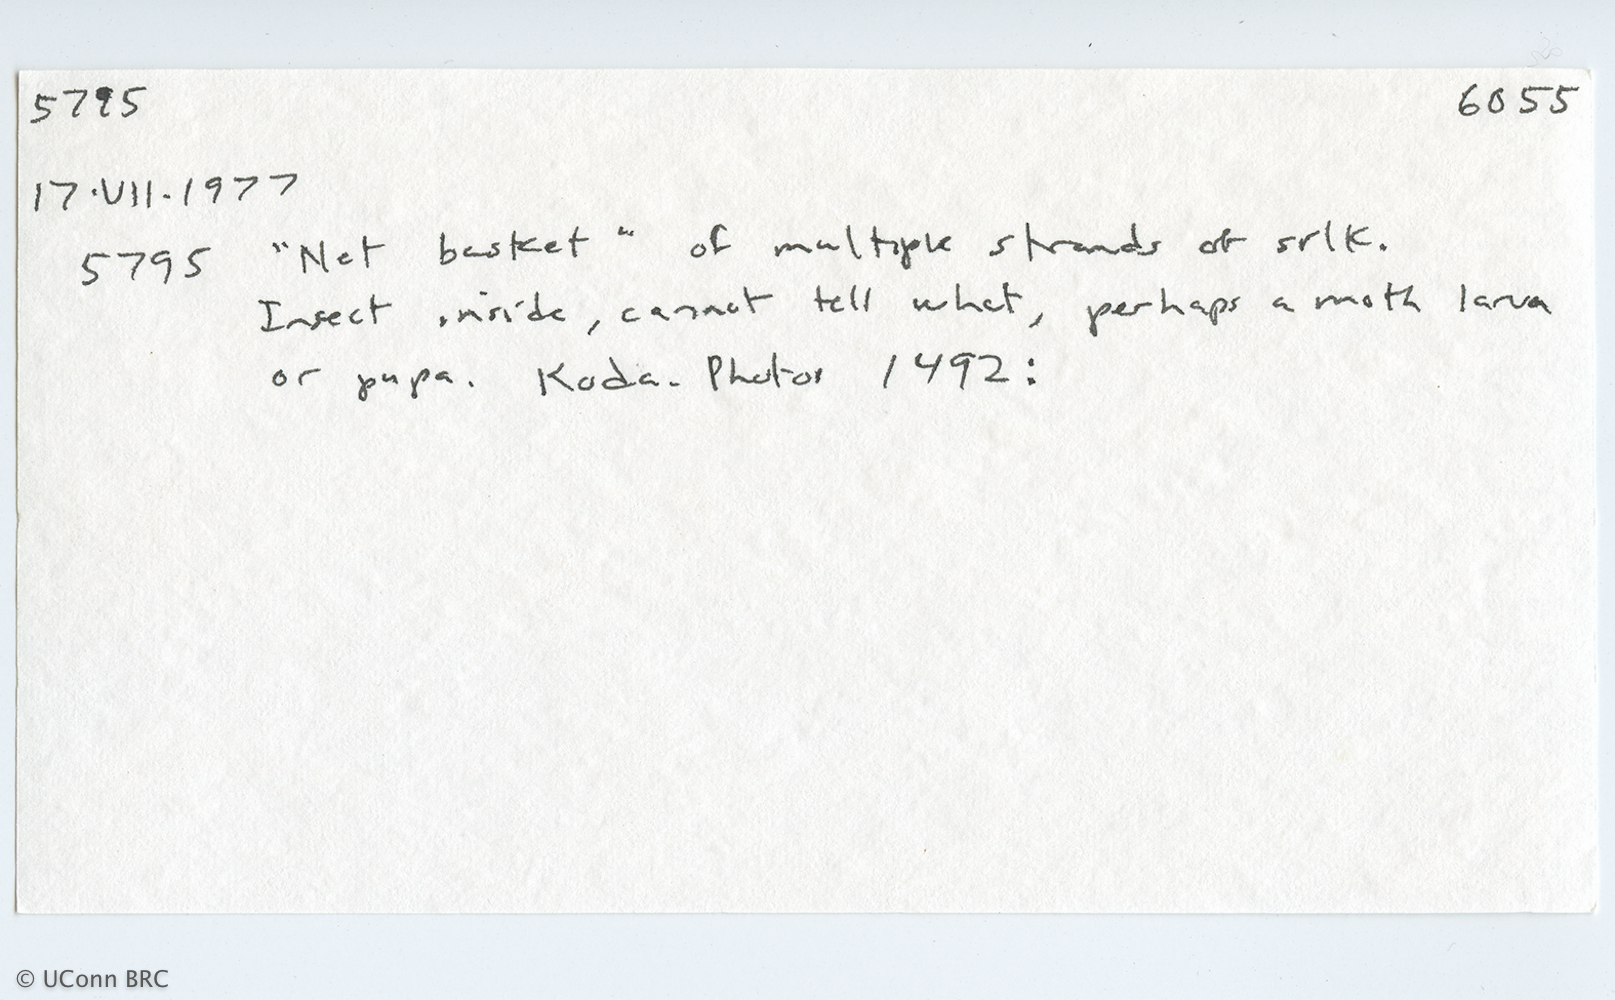 5795 6055
17.VII.1977
5795 "Net basket" of multiple strands of silk.
Insect inside, cannot tell what, perhaps a moth larva
or pupa. Koda. Photos 1492:
© UConn BRC